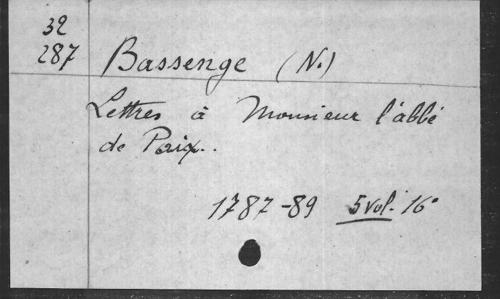 32
287
Bassenge (N.)
Lettres à Monsieur l'abbé
de Paix..
1787-89 5 vol. 16°